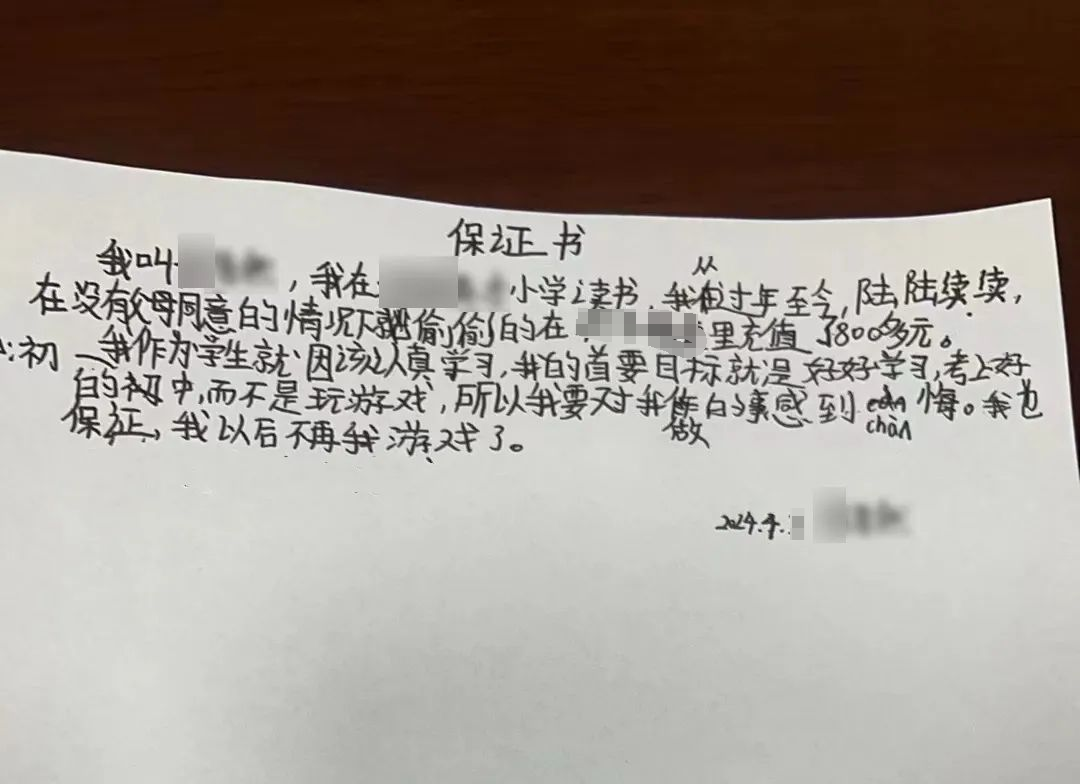 保证书
我叫，我在小学读书，我从过年至今，陆陆续续，
在没有父母同意的情况下偷偷的在里充值了800多元。
初一我作为学生就因该认真学习，我的首要目标就是好好学习，考上好
的初中，而不是玩游戏，所以我要对我做的事感到chàn悔。我也
保证，我以后不再我游戏了。
2024.4.